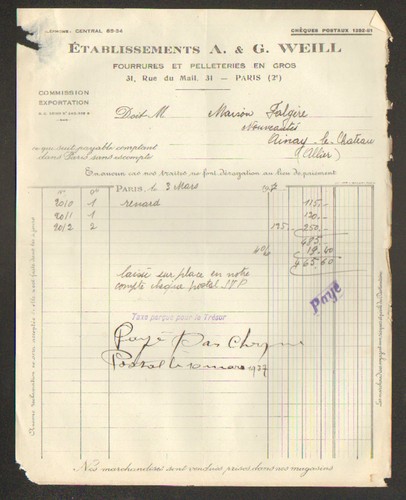 TÉLÉPHONE: CENTRAL 85-54
CHÈQUES POSTAUX 1282-01
ÉTABLISSEMENTS A. & G. WEILL
FOURRURES ET PELLETERIES EN GROS
31, Rue du Mail, 31 — PARIS (2e)
COMMISSION
EXPORTATION
Doit M. Maison Falgère
Nouveautés
Ainay-le-Chateau
(Allier)
ce qui suit payable comptant
dans Paris sans escompte
En aucun cas nos traites ne font dérogation au lieu de paiement
PARIS, le 3 Mars
2010 1 renard 115.-
2011 1 120.-
2012 2 125.- 250.-
485
4% 19.40
465.60
laissé sur place en notre
compte chèque postal SVP
Payé
Taxe perçue pour le Trésor
Payé par Chèque
Postal le mars 1927
Nos marchandises sont vendues prises dans nos magasins